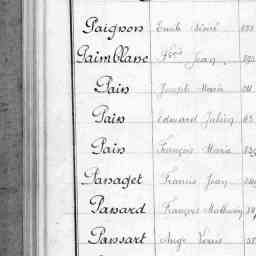 Paignon Emile Désiré
Paimblanc Fçois Jean
Pain Joseph Marie
Pain Edouard Julien
Pain François Marie
Panaget Francis Jean
Panard François Mathurin
Panssart Ange Louis